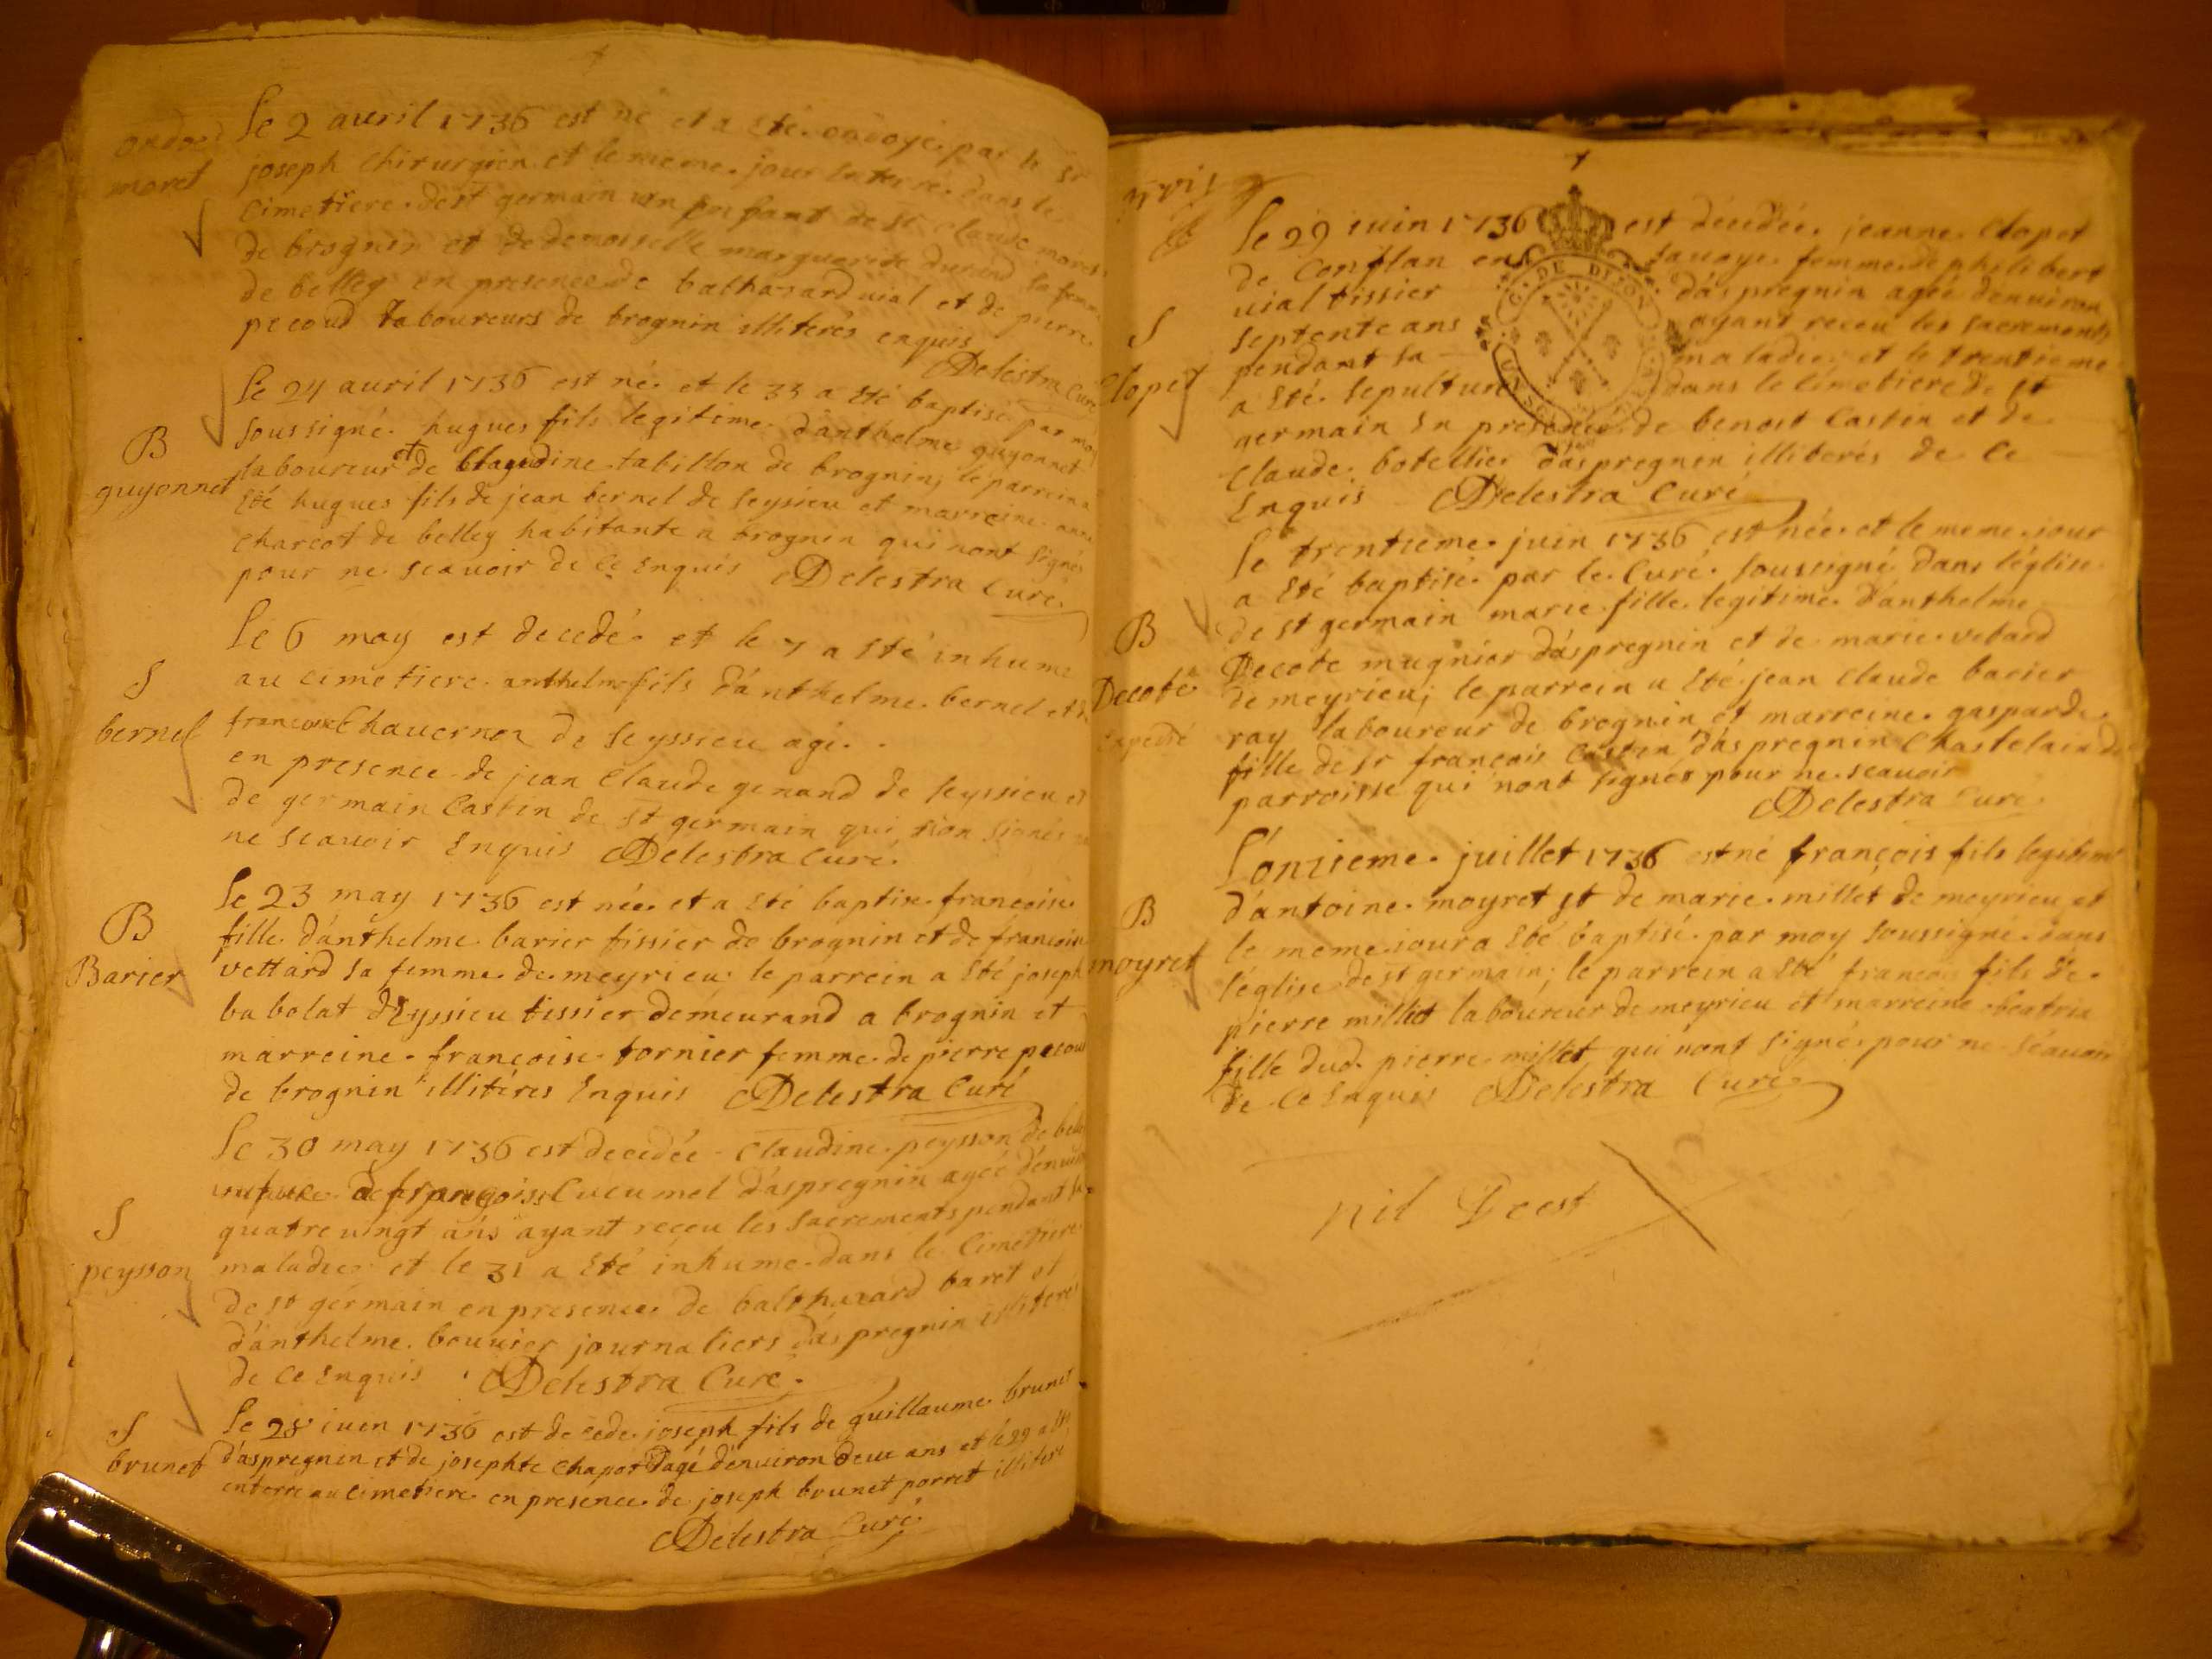 ondoyé
moret
Le 2 auril 1736 est né et a Eté ondoyé par le Sr
joseph Chirurgien et le meme jour Enterré dans le
Cimetiere de st germain un Enfant de Sr Claude moret
de brognin et de demoiselle marguerite durand sa femme
de belley en presence de balthazard uial et de pierre
pecoud laboureurs de brognin illiterés enquis
Delestra Curé
B
guyonnet
Le 24 auril 1736 est né et le a Eté baptisé par moy
soussigné hugues fils legitime d'anthelme guyonnet
laboureur et de Claudine tabillon de brognin, le parrein a
Eté hugues fils de jean bernel de Seyssieu et marreine anne
Charcot de belley habitante a brognin qui nont signés
pour ne scauoir de ce Enquis Delestra Curé
S
bernel
Le 6 may est decedé et le 7 a Eté inhumé
au cimetiere anthelme fils d'anthelme bernel et de
francoise Chauernoz de Seyssieu agé
en presence de jean Claude genand de Seyssieu et
de germain Castin de st germain qui n'on signés
ne scauoir Enquis Delestra Curé
B
Barier
Le 23 may 1736 est née et a Eté baptisé francoise
fille d'anthelme barier tissier de brognin et de francoise
vettard sa femme de meyrieu le parrein a Eté joseph
babolat d'Eyssieu tissier demeurand a brognin et
marreine francoise tornier femme de pierre pecoud
de brognin illitéres Enquis Delestra Curé
S
peysson
Le 30 may 1736 est decedée Claudine peysson de belley
de françois Cucumel d'aspregnin ageé d'enuiron
quatre uingt ans ayant receu les sacrements pendant sa
maladie et le 31 a Eté inhumé dans le Cimetiere
de st germain en presence de balthazard baret et
d'anthelme bouuier journaliers d'aspregnin illiterés
de ce Enquis Delestra Curé
S
brunet
Le 28 iuin 1736 est decede joseph fils de guillaume brunet
d'aspregnin et de josephte Chapot agé d'enuiron deux ans et le 29 a Eté
enterré au cimetiere en presence de joseph brunet porret illiteré
Delestra Curé
S
Clopet
Le 29 iuin 1736 est décedée jeanne Clopet
de Conflan en sauoye femme de philibert
uial tissier d'aspregnin ageé d'enuiron
septente ans ayant receu les sacrements
pendant sa maladie et le trentieme
a Eté sepulturé dans le Cimetiere de st
germain En presence de benoist Castin et de
Claude botellier d'aspregnin illiterés de Ce
Enquis Delestra Curé
G. DE DIJON
B
Decoté
Expedié
Le trentieme juin 1736 est née et le meme iour
a Eté baptisé par le Curé soussigné dans l'église
de st germain marie fille legitime d'anthelme
Decote mugnier d'aspregnin et de marie vetard
de meyrieu; le parrein a Eté jean Claude barier
ray laboureur de brognin et marreine gasparde
fille de sr francois Castin d'aspregnin Chastelain de
parroisse qui nont signés pour ne scauoir
Delestra Curé
B
moyret
L'onzieme juillet 1736 est né françois fils legitime
d'antoine moyret et de marie millet de meyrieu et
le meme iour a Eté baptisé par moy soussigné dans
l'église de st germain; le parrein a Eté francois fils de
pierre millet laboureur de meyrieu et marreine beatrix
fille dud. pierre millet qui nont signé pour ne scauoir
de Ce Enquis Delestra Curé
nil Deest